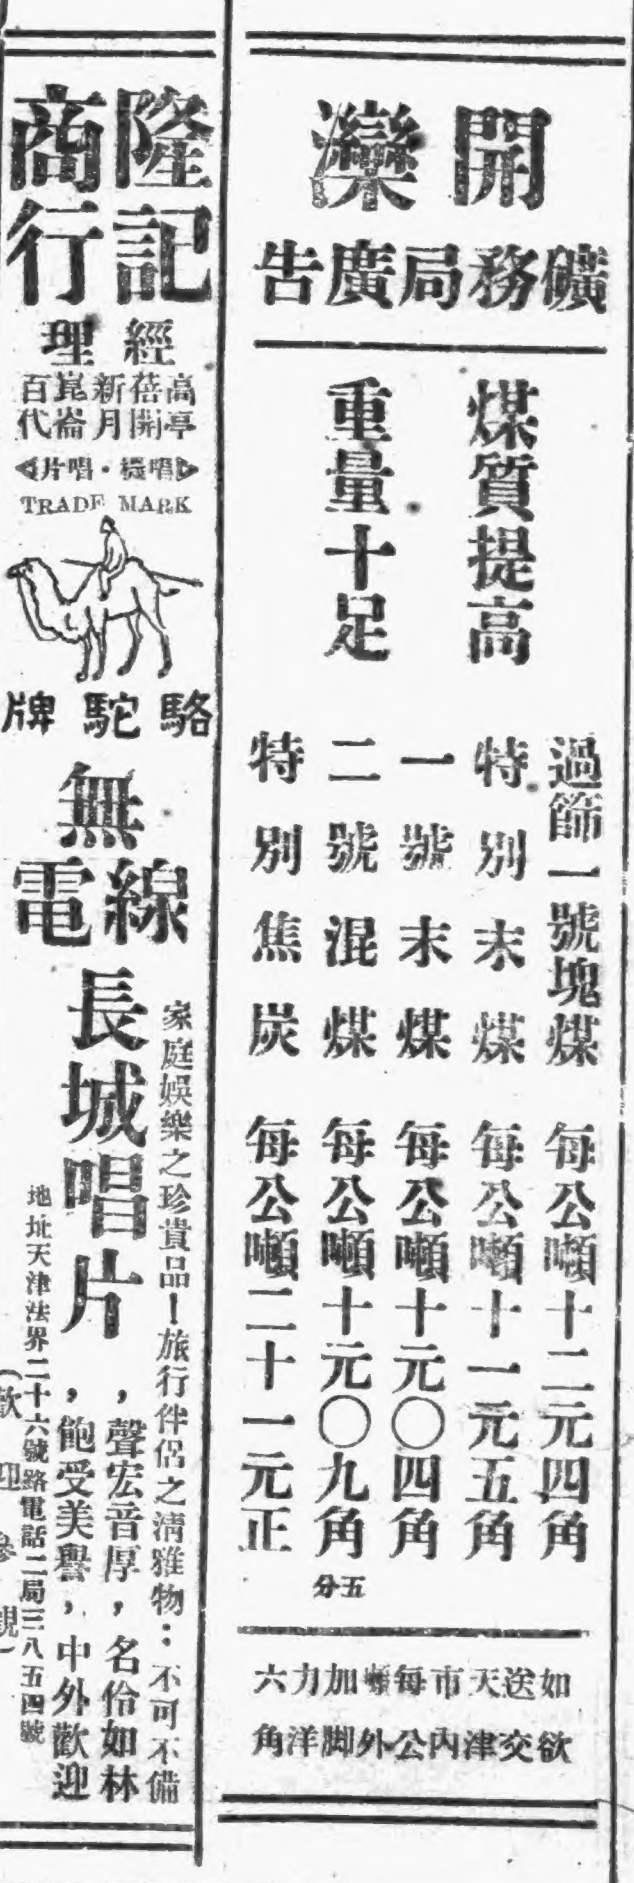 開灤
礦務局廣告
煤質提高
重量十足
過篩一號塊煤 每公噸十二元四角
特別末煤 每公噸十一元五角
一號末煤 每公噸十元〇四角
二號混煤 每公噸十元〇九角五分
特別焦炭 每公噸二十一元正
如欲送交天津市內每公噸外加脚力洋六角
隆記
商行
經理
高亭
蓓開
新月
崑崙
百代
唱機·唱片
TRADE MARK
駱駝牌
無
線電
長城唱片
家庭娛樂之珍貴品！旅行伴侶之淸雅物：不可不備
，聲宏音厚，名伶如林
，飽受美譽，中外歡迎
地址天津法界二十六號路電話二局三八五四號
（歡迎參觀）